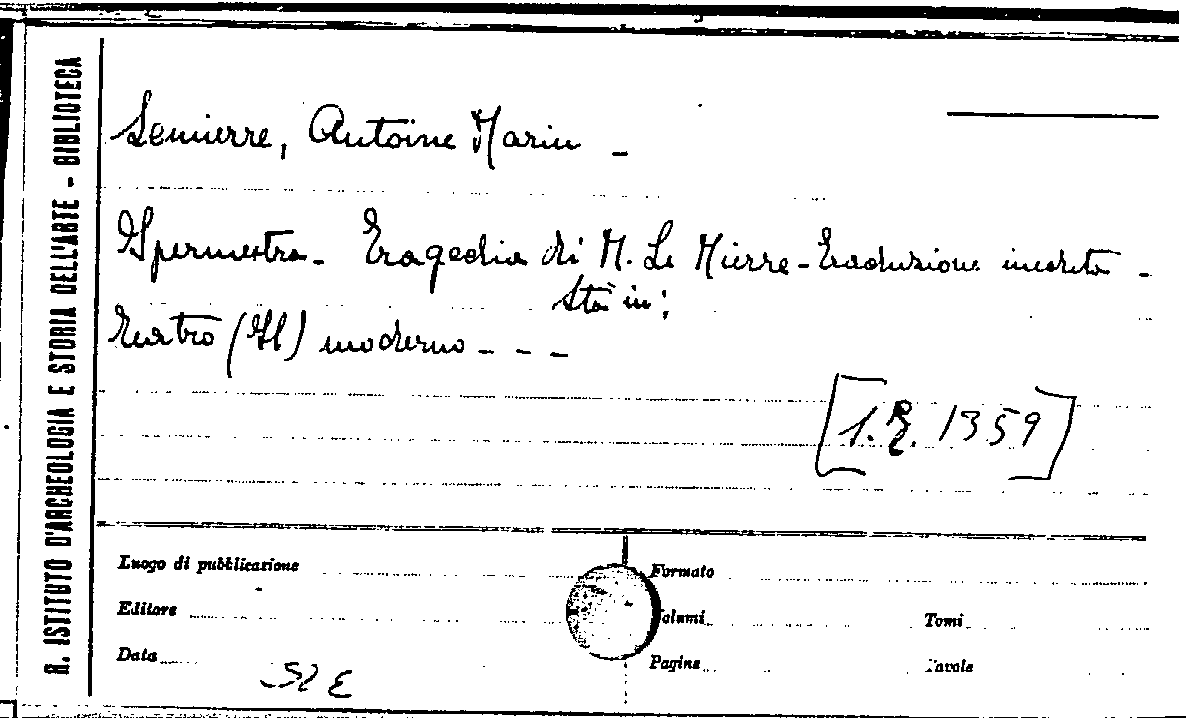 R. ISTITUTO D'ARCHEOLOGIA E STORIA DELL'ARTE - BIBLIOTECA
Lemierre, Antoine Marin -
Ipermestra - Tragedia di M. Le Mierre - Traduzione inedita -
Sta in:
Teatro (Il) moderno - - -
[1. R. 1359]
Luogo di pubblicazione
Formato
Editore
Volumi
Tomi
Data
Pagine
Tavole